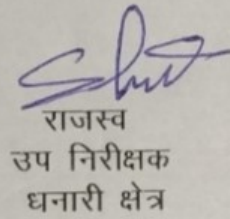 राजस्व
उप निरीक्षक
धनारी क्षेत्र